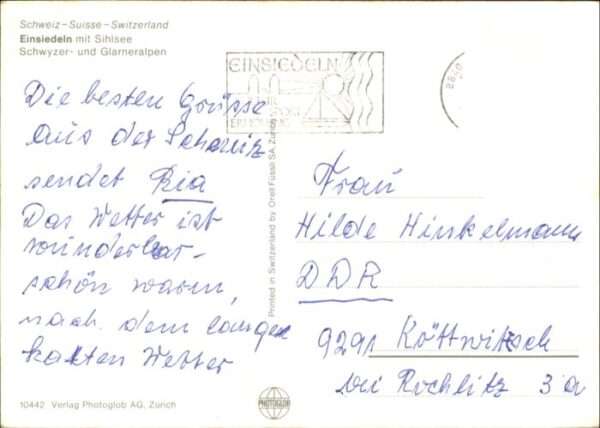 Schweiz – Suisse – Switzerland
Einsiedeln mit Sihlsee
Schwyzer- und Glarneralpen
EINSIEDELN
Die besten Grüsse
aus der Schweiz
sendet Ria
Das Wetter ist
wunderbar-
schön warm,
nach dem langen
kalten Wetter
Printed in Switzerland by Orell Füssli SA, Zurich
Frau
Hilde Hinkelmann
DDR
9291 Köttwitzsch
bei Rochlitz 3a
10442 Verlag Photoglob AG, Zürich
PHOTOGLOB